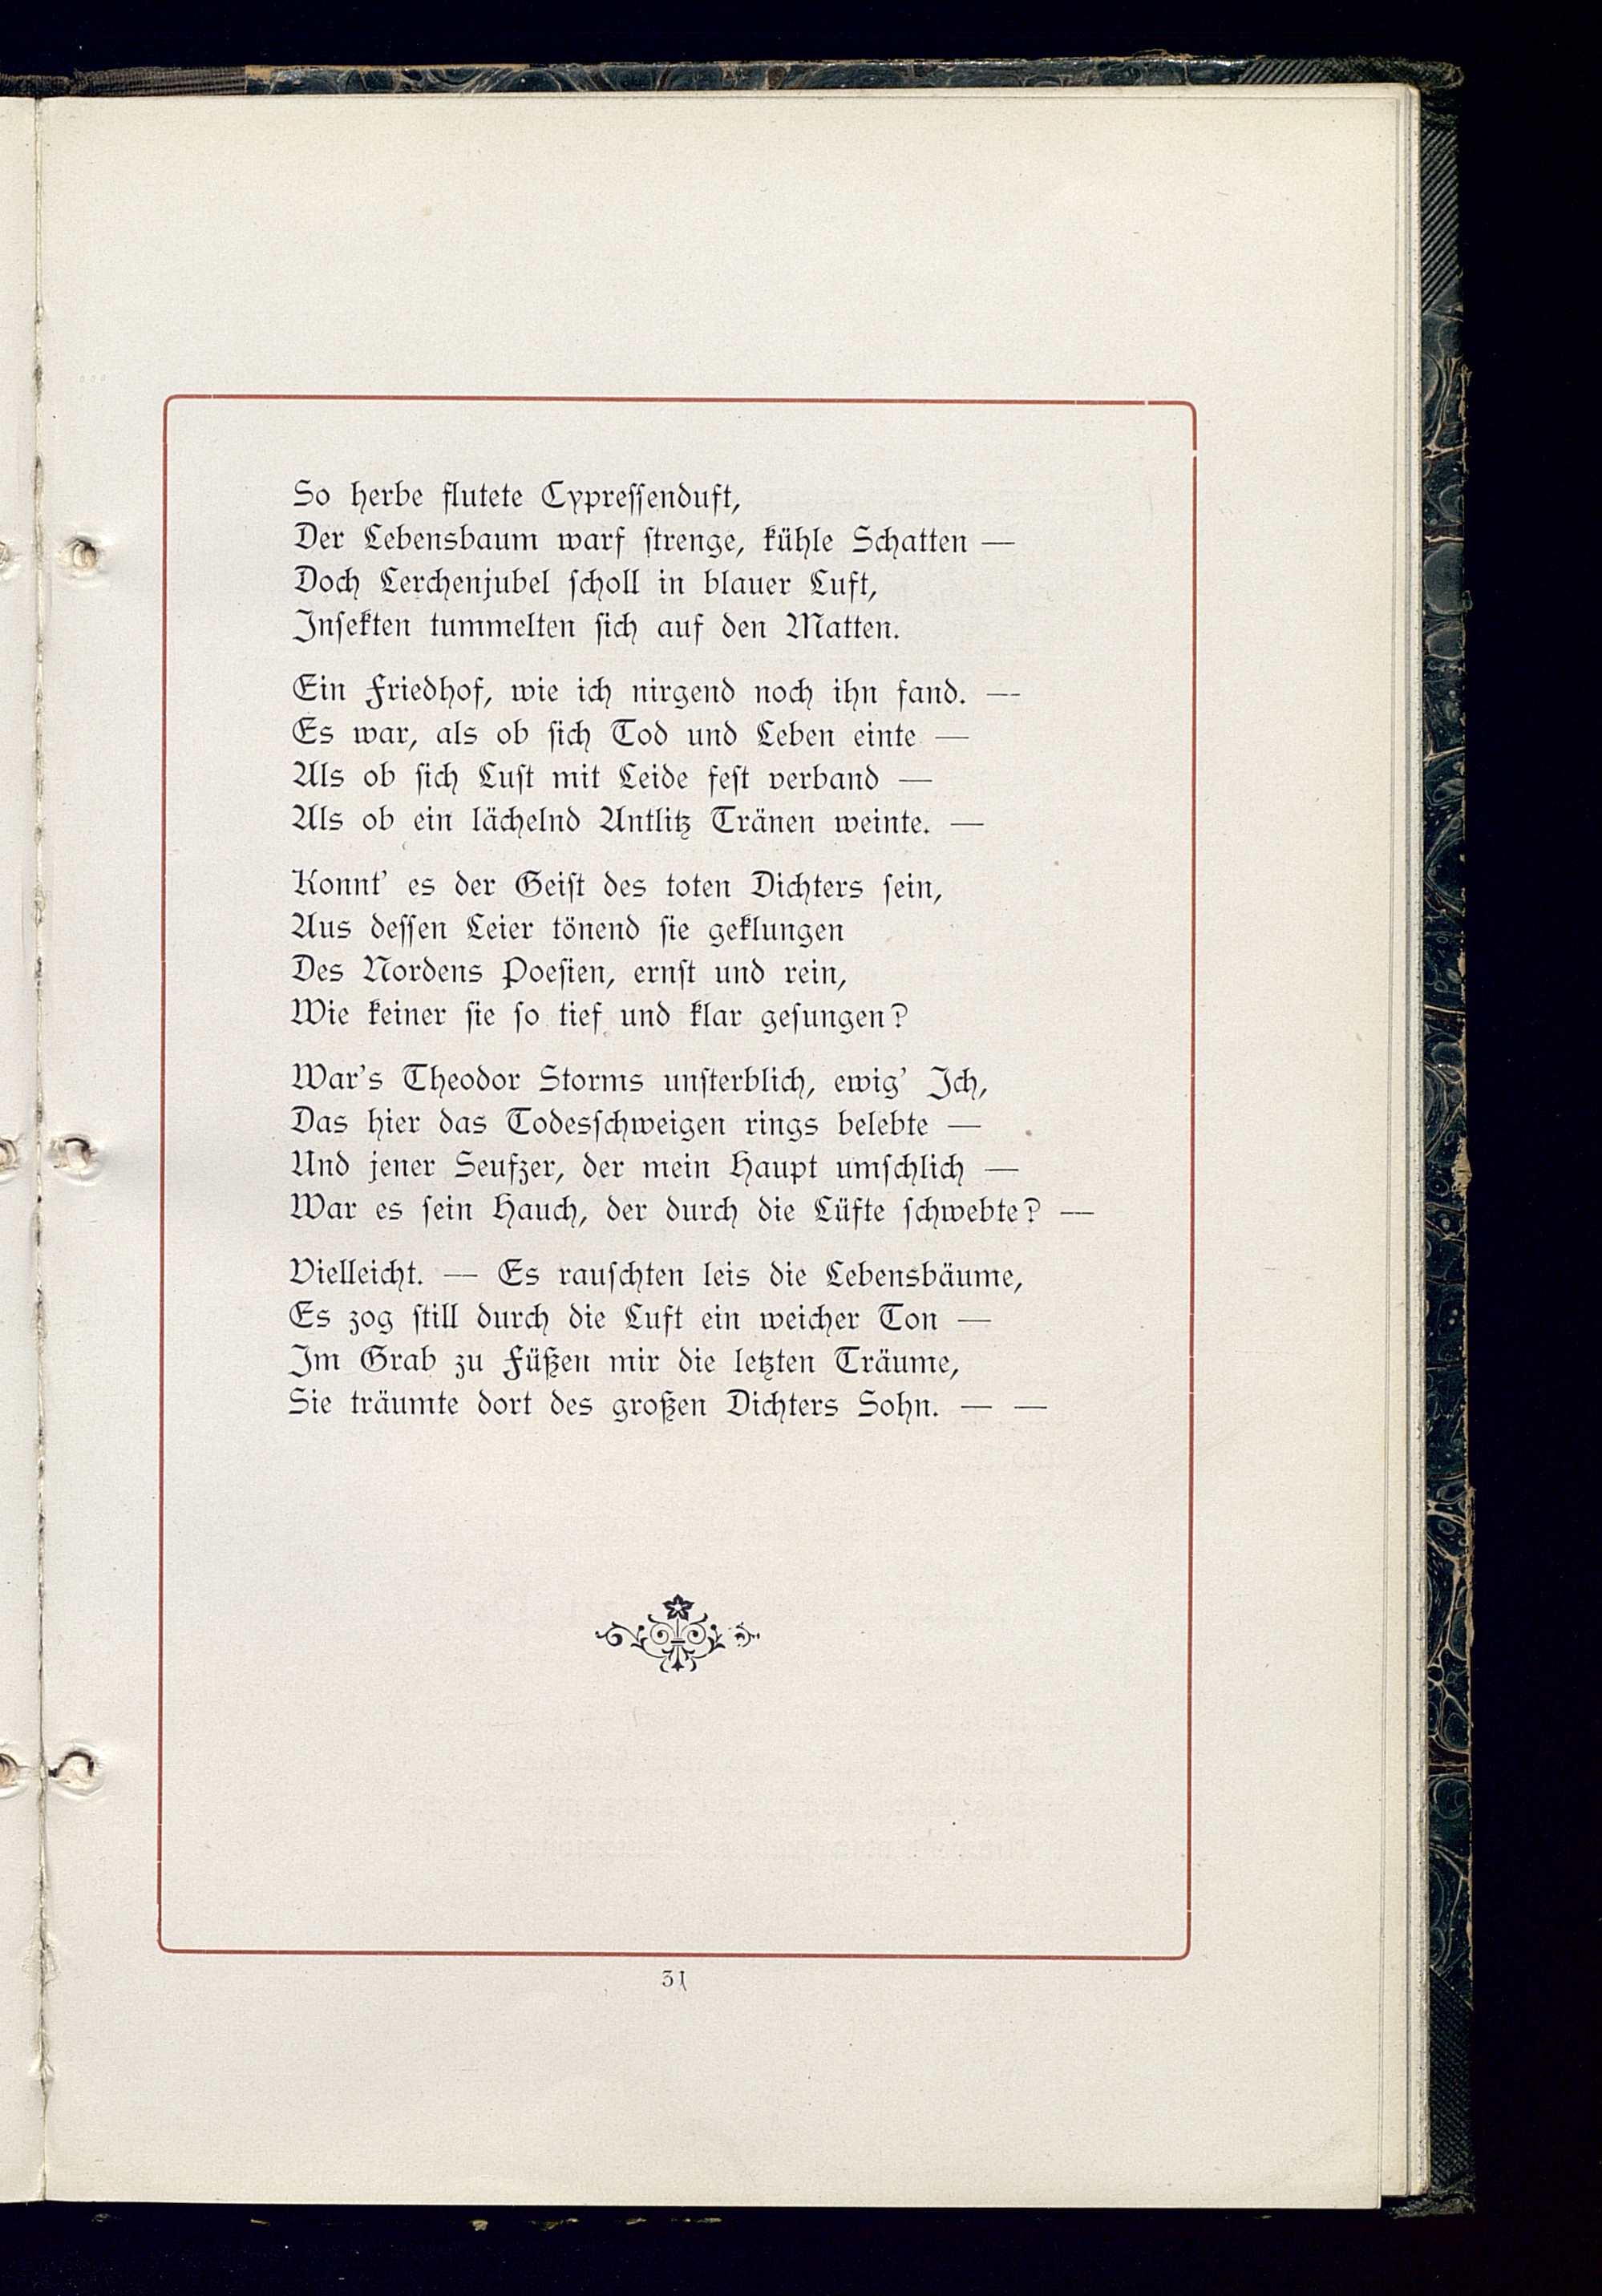 So herbe flutete Cypressenduft,
Der Lebensbaum warf strenge, kühle Schatten —
Doch Lerchenjubel scholl in blauer Luft,
Insekten tummelten sich auf den Matten.
Ein Friedhof, wie ich nirgend noch ihn fand. —
Es war, als ob sich Tod und Leben einte —
Als ob sich Lust mit Leide fest verband —
Als ob ein lächelnd Antlitz Tränen weinte. —
Konnt' es der Geist des toten Dichters sein,
Aus dessen Leier tönend sie geklungen
Des Nordens Poesien, ernst und rein,
Wie keiner sie so tief und klar gesungen?
War's Theodor Storms unsterblich, ewig' Ich,
Das hier das Todesschweigen rings belebte —
Und jener Seufzer, der mein Haupt umschlich —
War es sein Hauch, der durch die Lüfte schwebte? —
Vielleicht. — Es rauschten leis die Lebensbäume,
Es zog still durch die Luft ein weicher Ton —
Im Grab zu Füßen mir die letzten Träume,
Sie träumte dort des großen Dichters Sohn. — —
31